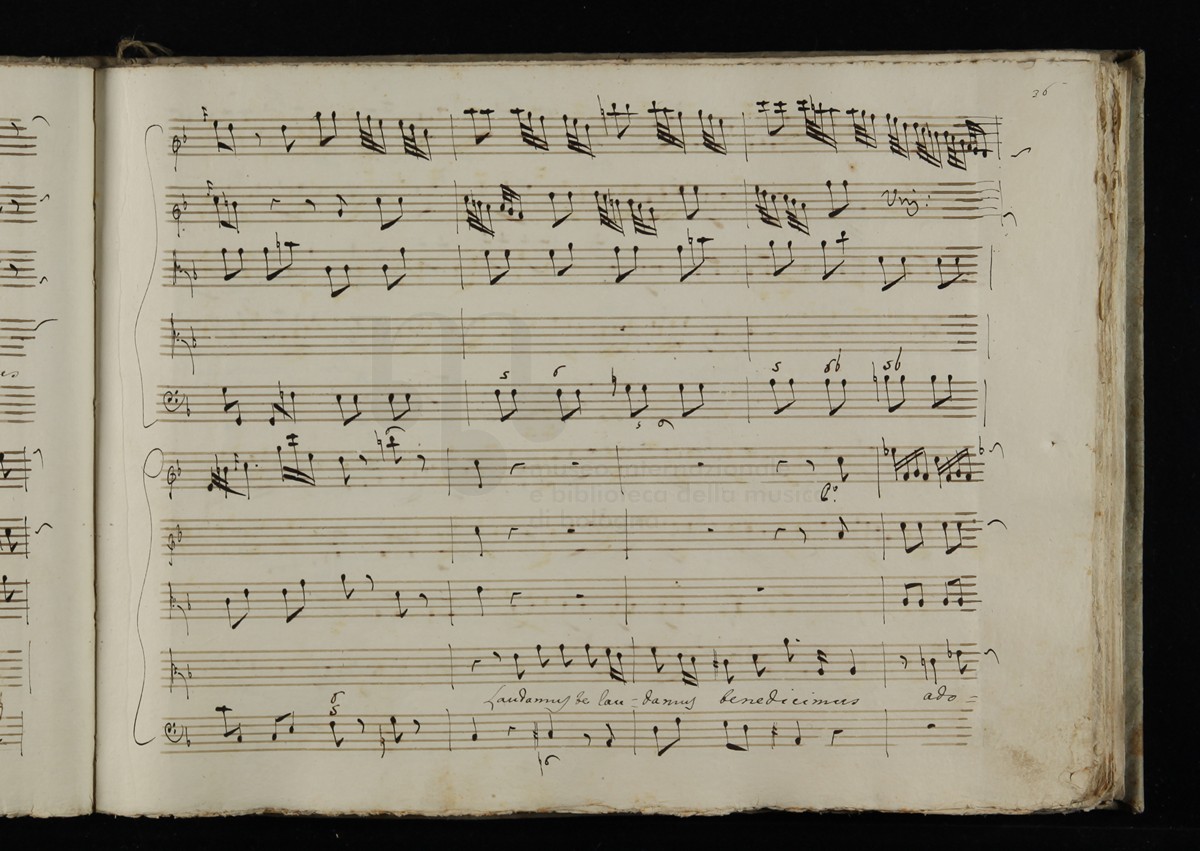 36
Unis:
5 6 5 6b 5b
5 6
museo internazionale
e biblioteca della musica
di bologna
Laudamus te lau = damus benedicimus ado =
6
5
6